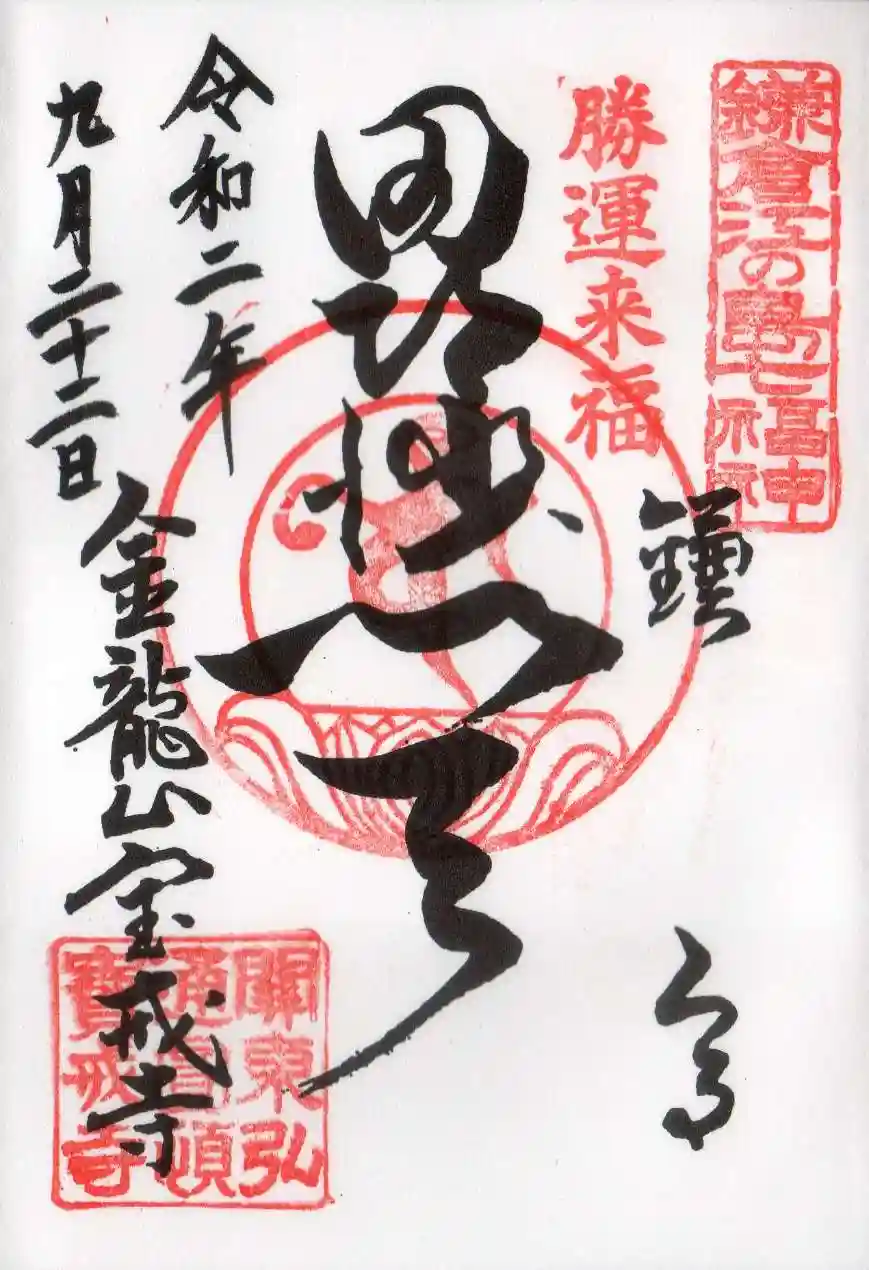 鎌倉江の島七福神
勝運来福
鎌倉
毘沙門天
令和二年
九月二十二日
金龍山宝戒寺
關東弘
通圓頓
寶戒寺